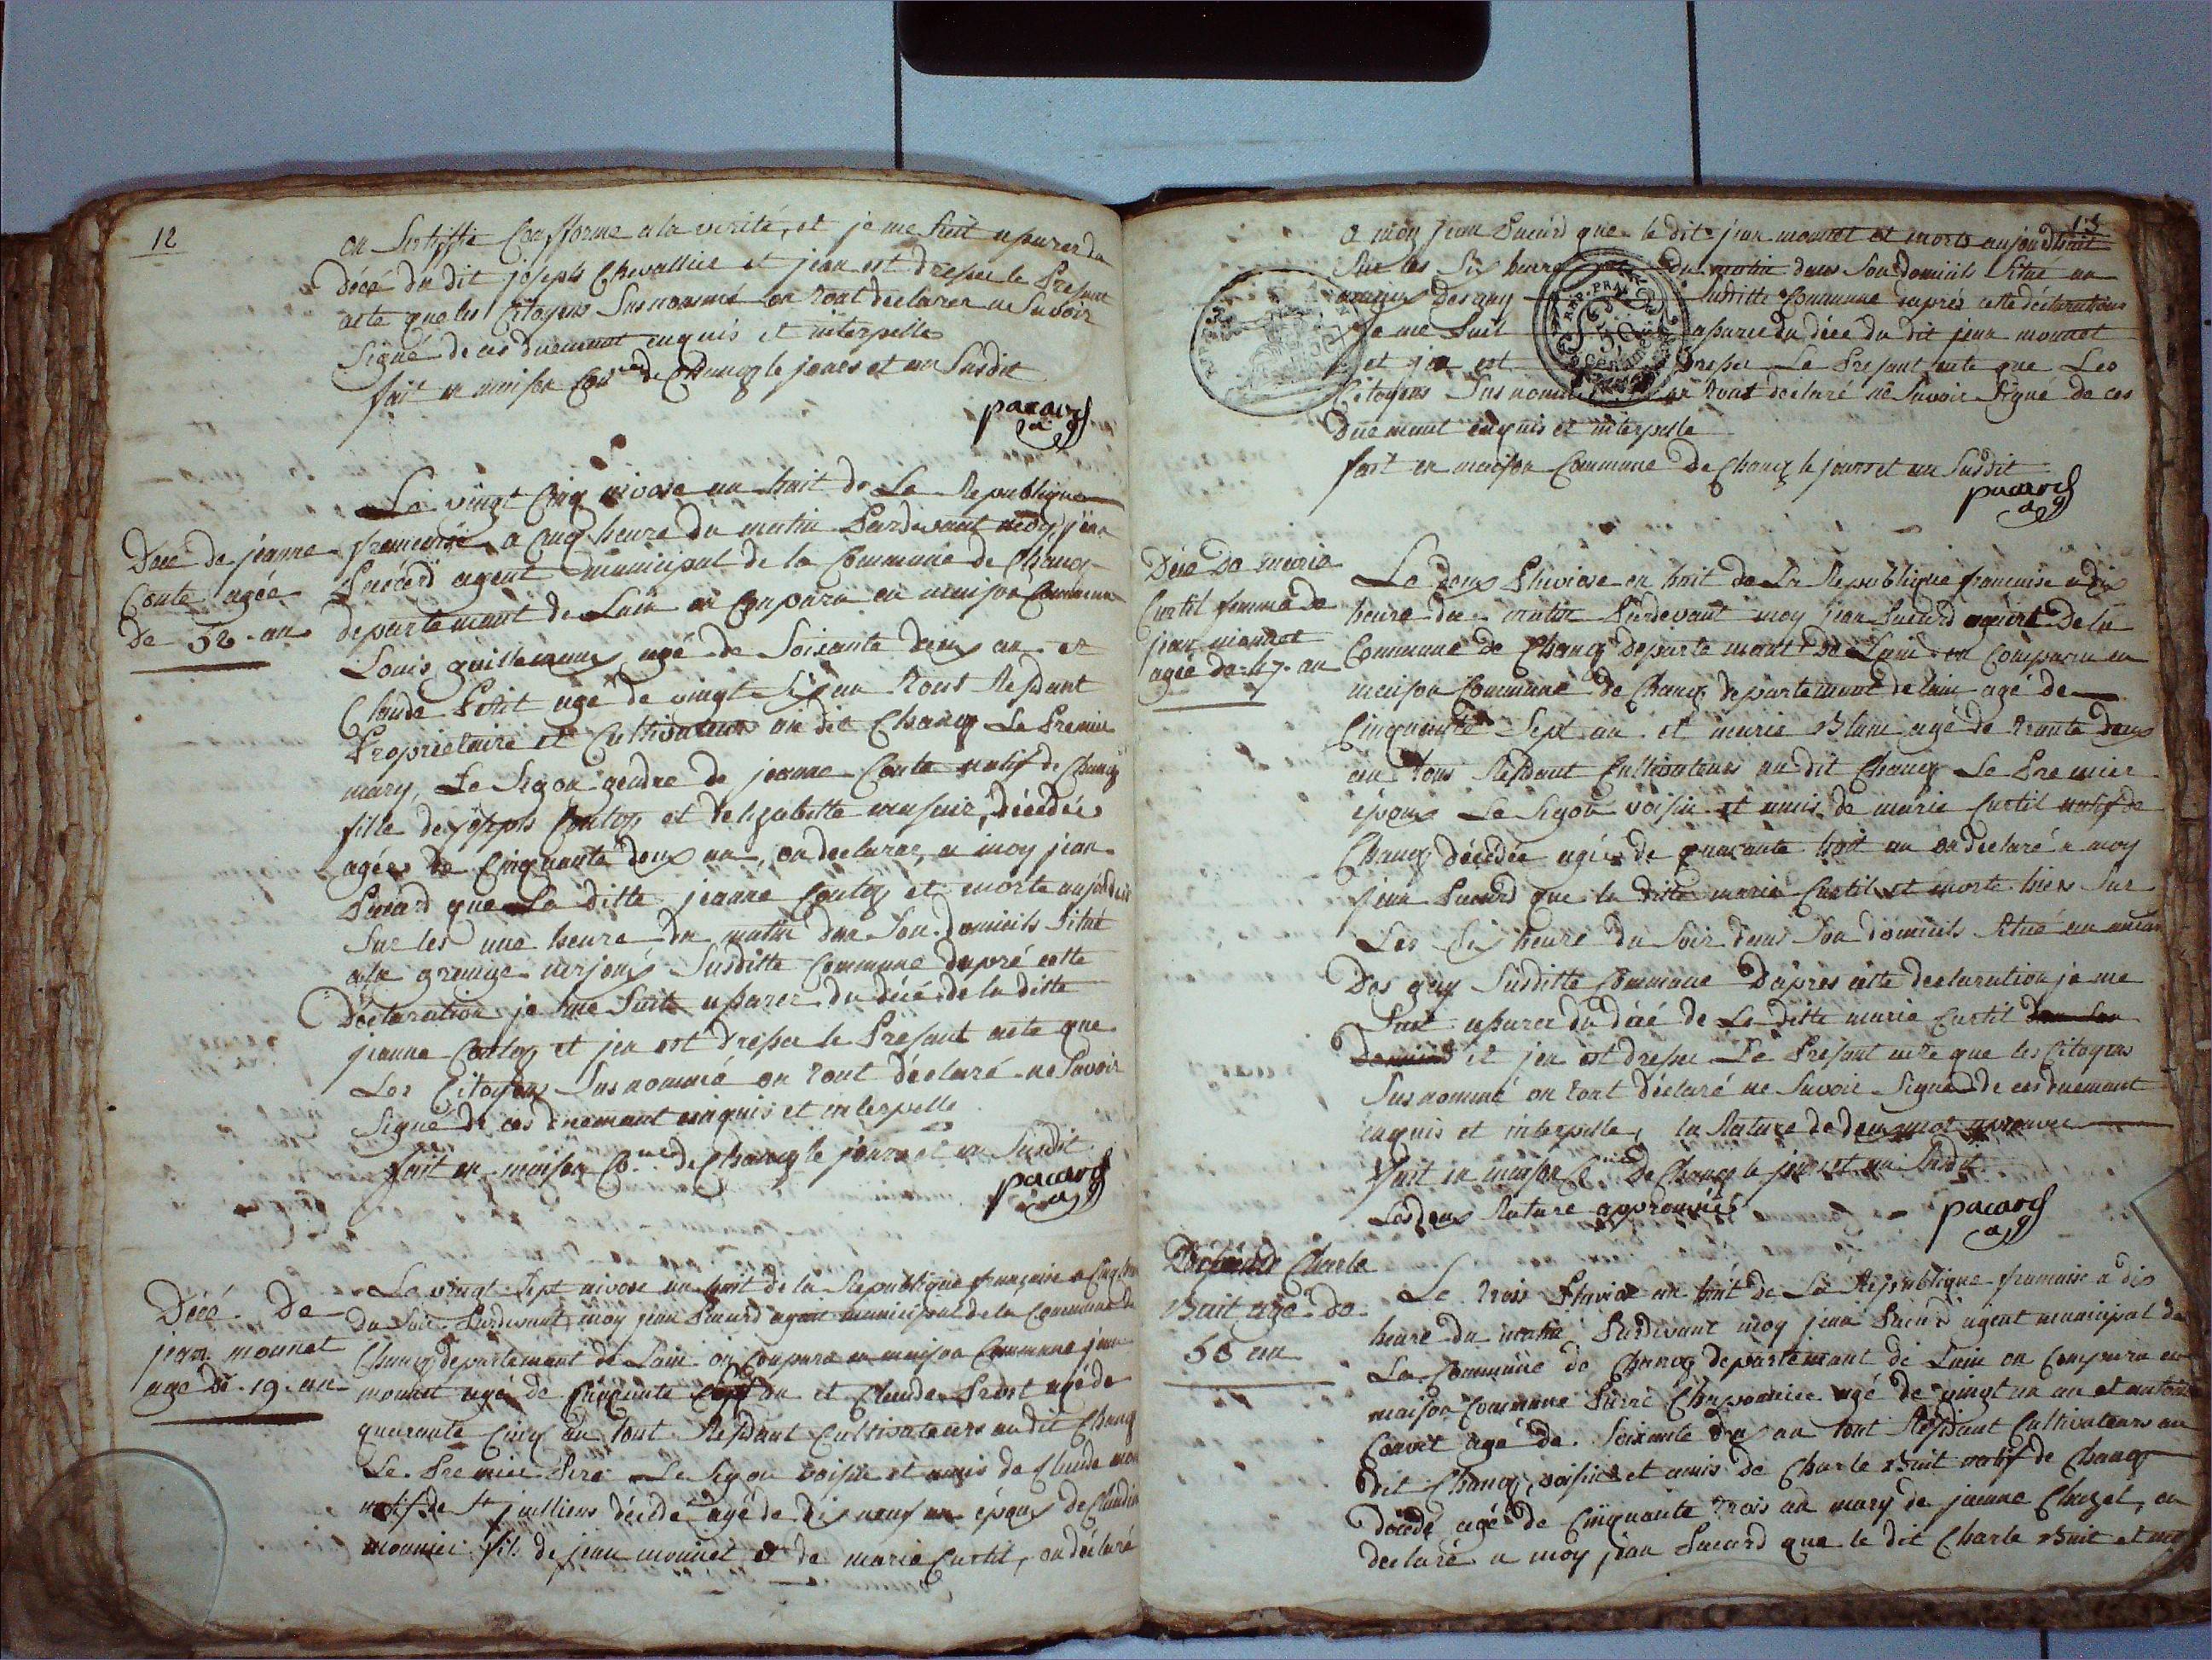 12
on Sertiffié Confforme a la verité, et je me suit assurer du
décé du dit joseph Chevallier et jean est dressee le Presant
acte que les Citoyens Susnommé on tout declarer ne Savoir
Signé de ces duemant enquis et interpelle
fait en maison Co.ne de Chancy le jours et an Susdit
pacard
ag
Le vingt Cinq nivose an huit de La Republique
francaise a Cinq heure du matin Pardevant moy jean
Paccard agent municipal de la Commune de Chancy
departemant de Lain on Conparu en maison Commune
Louis guillemaux agé de Soixante deux an et
Claude Petit agé de vingt Six an tout Residant
Proprietaire et Cultivateur au dit Chancy Le Premier
mary, Le Segon gendre de jeanne Conte natif de Chancy
fille de joseph Contoz et delizabette décédée
agées de Cinquante deux an, on declarer, a moy jean
Pacard que La ditte jeanne Contoz et morte aujourdhuit
Sur les une heure du matin dan Son domicils Situé
a la grange Susditte Commune dapré cette
Déclaration je me Suit assurer du décé de la ditte
jeanne Contoz et jen est dresser le Presant acte que
Les Citoyens Susnommé on tout déclaré ne Savoir
Signé de ces duemant enquis et interpelle
fait en maison Co.ne de Chancy le jours et an Susdit
pacard
ag
Décé de jeanne
Conte agée
De 52 an
Le vingt Sept nivose an huit de la Republique française a Cinq heure
du Soir Pardevant moy jean Pacard agent municipal de la Commune de
Chancy departemant de Lain on Conparu en maison Commune jean
monnet agé de Cinquante Sept an et Claude Prost agé de
quarante Cinq an tout Residant Cultivateurs au dit Chancy
Le Premier Pere Le Segon voisin et amis de Claude mon
natif de St julliens décédé agé de Dix neuf an époux de Claudin
monnier fils de jean monnet et de marie Curtil, on déclaré
Décé De
jean monnet
age de 19 an
13
a moy jean Pacard que le dit jean monnet et morts aujourdhuit
Sur les Six heure du matin dans Son domicils Situé au
Susditte Commune daprés cette déclarations
je me Suit assurer du décé du dit jean monnet
et jen est dresser Le Presant acte que Les
Citoyens Susnommé on tout déclaré ne Savoir Signé de ces
Duemant enquis et interpelle
fait en maison Commune de Chancy le jours et an Susdit
pacard
ag
REP. FRA.
50
Centimes
Décé de marie
Curtil femme de
jean monnet
agée de 47 an
Le deux Pluviose an huit de La Republique francaise a dix
heure du matin Pardevant moy jean Pacard agent De la
Commune de Chancy Departemant De Lain on Comparu en
maison Commune de Chancy departemant de lain agé de
Cinquante Sept an et marie Blanc agé de trante deux
an tous Residant Cultivateurs au dit Chancy Le Premier
époux Le Segon voisin et amis de marie Curtil natif de
Chancy décédée agée de quarante huit an on declaré a moy
jean Pacard que la ditte marie Curtil et morte hiers Sur
Les Six heure du Soir dans Son domicils Situé au
Susditte Commune Dapres cette declaration je me
Suit assurer du décé de La ditte marie Curtil dan Son
Domicils et jen est dresser Le Presant acte que les Citoyens
Susnommé on tout déclaré ne Savoir Signé de ces duemant
enquis et interpelle, la Rature de deux mot aprouver
fait en maison C.ne De Chancy le jour et an Susdit
Les deux Rature approuvées
pacard
ag
Charle
Buit agé de
53 an
Le trois Pluviose an huit de La Republique francaise a dix
heure du matin Pardevant moy jean Pacard agent municipal de
La Commune de Chancy departemant de Lain on Comparu en
maison Commune Pierre Chaponnier agé de vingt un an et antoine
Convet agé de Soixante dix an tout Residant Cultivateurs au
dit Chancy, voisins et amis de Charle Buit natif de Chancy
décédé agé de Cinquante trois an mary de jeanne Chazet, on
declaré a moy jean Pacard que le dit Charle Buit et mo